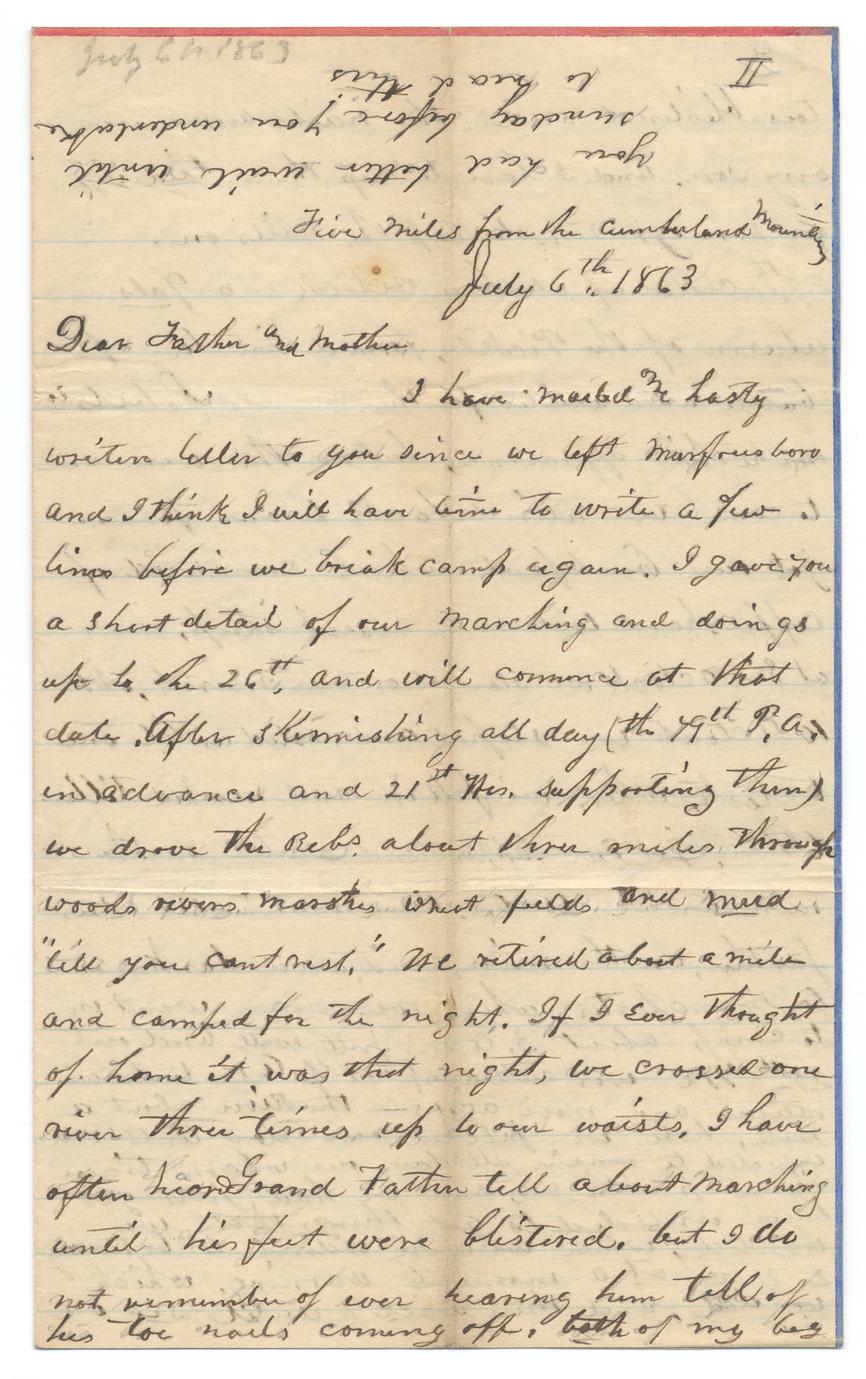 July 6th 1863
II
you had better wait until
sunday before you undertake
to read this
Five miles from the Cumberland Mountains
July 6th 1863
Dear Father and Mother
I have mailed one hasty
writen letter to you since we left Murfreesboro
and I think I will have time to write a few
lines before we break camp again. I gave you
a short detail of our marching and doings
up to the 26th, and will commence at that
date. After skirmishing all day (the 79th P.A.
in advance and 21st Wis. supporting them)
we drove the Rebs. about three miles through
woods rivers marshes wheat fields and mud
"till you cant rest." We retired about a mile
and camped for the night. If I Ever thought
of home it was that night, we crossed one
river three times up to our waists, I have
often heard Grand Father tell about marching
until his feet were blistered. but I do
not remember of ever hearing him tell of
his toe nails coming off. both of my big